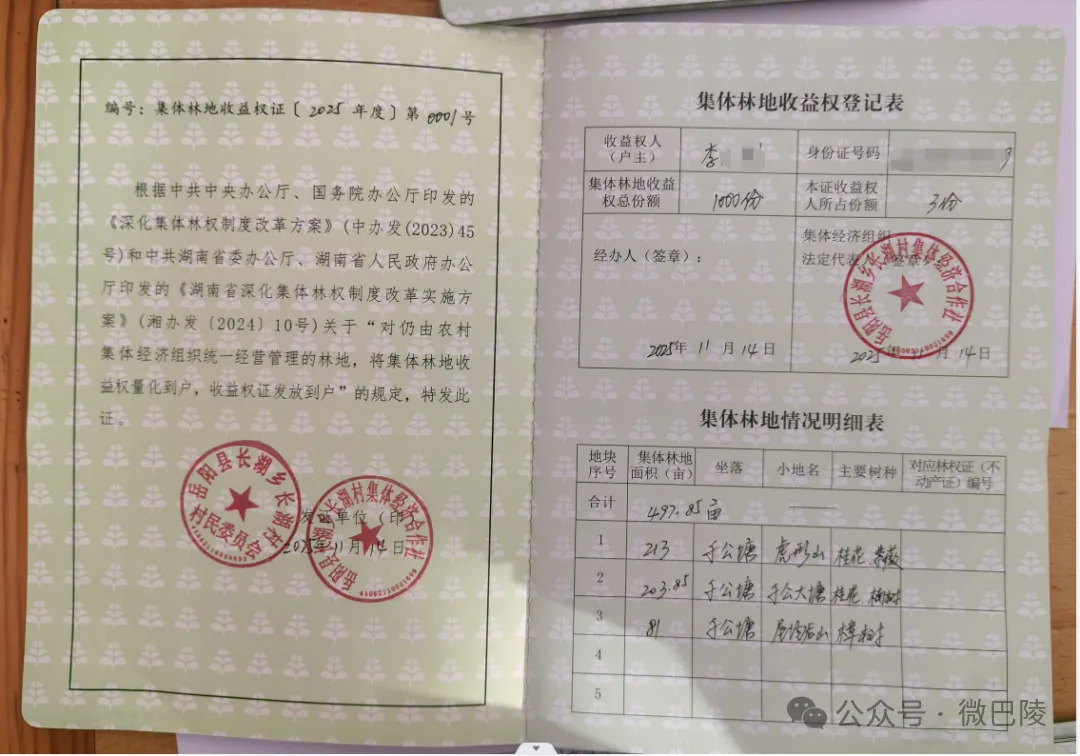 编号：集体林地收益权证〔2025年度〕第0001号
根据中共中央办公厅、国务院办公厅印发的
《深化集体林权制度改革方案》(中办发(2023)45
号)和中共湖南省委办公厅、湖南省人民政府办公
厅印发的《湖南省深化集体林权制度改革实施方
案》(湘办发〔2024〕10号)关于“对仍由农村
集体经济组织统一经营管理的林地，将集体林地收
益权量化到户，收益权证发放到户”的规定，特发此
证。
岳阳县长湖乡长湖村
村民委员会
岳阳县长湖乡长湖村集体经济合作社
发证单位（印）
2025年11月14日
集体林地收益权登记表
收益权人（户主） 李 身份证号码 3
集体林地收益权总份额 1000份 本证收益权人所占份额 3份
经办人（签章）：
集体经济组织
法定代表人（签章）
岳阳县长湖乡长湖村集体经济合作社
2025年11月14日
2025年11月14日
集体林地情况明细表
地块序号 集体林地面积（亩） 坐落 小地名 主要树种 对应林权证（不动产证）编号
合计 497.85亩
1 213 千公塘 虎形山 桂花
2 203.85 千公塘 千公大塘 桂花
3 81 千公塘 樟树
4
5
公众号·微巴陵